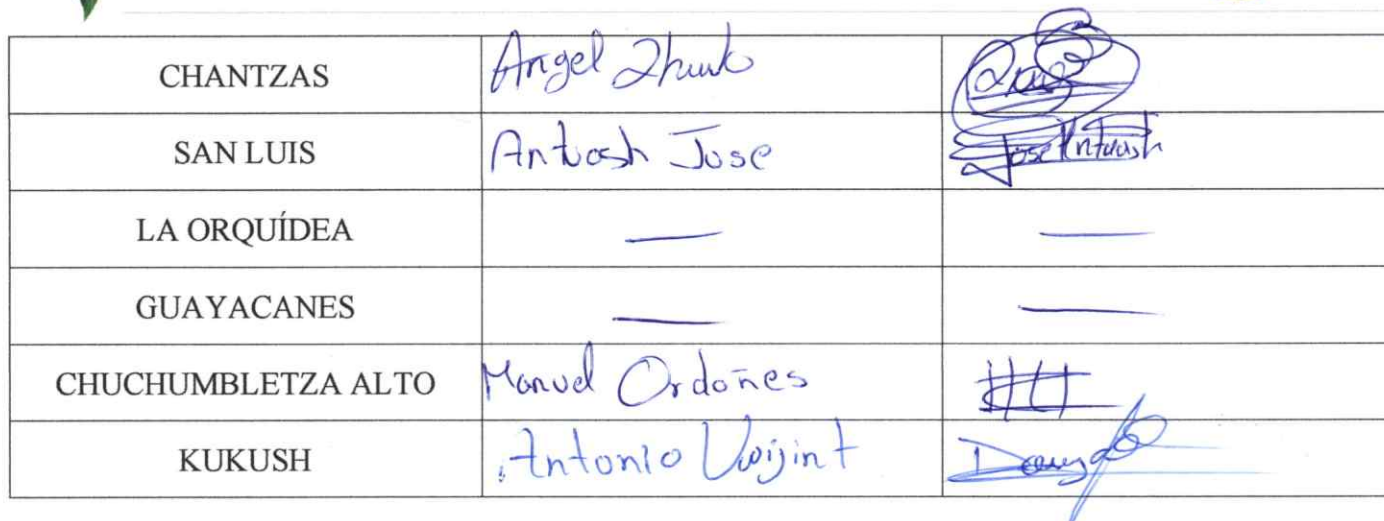 CHANTZAS Angel Zhunio
SAN LUIS Antuash Jose Jose Antuash
LA ORQUÍDEA — —
GUAYACANES — —
CHUCHUMBLETZA ALTO Manuel Ordoñes
KUKUSH Antonio Uwijint